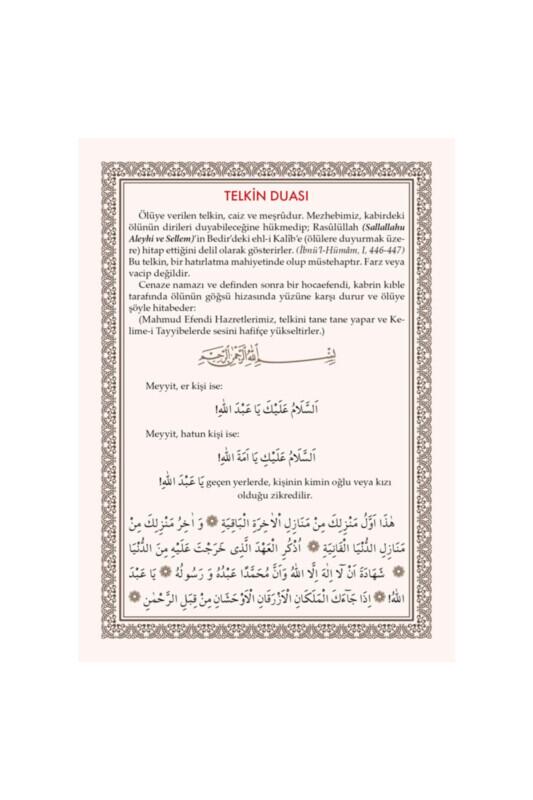 TELKİN DUASI
Ölüye verilen telkin, caiz ve meşrûdur. Mezhebimiz, kabirdeki
ölünün dirileri duyabileceğine hükmedip; Rasûlüllah (Sallallahu
Aleyhi ve Sellem)'in Bedir'deki ehl-i Kalîb'e (ölülere duyurmak üze-
re) hitap ettiğini delil olarak gösterirler. (İbnü'l-Hümâm, I, 446-447)
Bu telkin, bir hatırlatma mahiyetinde olup müstehaptır. Farz veya
vacip değildir.
Cenaze namazı ve definden sonra bir hocaefendi, kabrin kıble
tarafında ölünün göğsü hizasında yüzüne karşı durur ve ölüye
şöyle hitabeder:
(Mahmud Efendi Hazretlerimiz, telkini tane tane yapar ve Ke-
lime-i Tayyibelerde sesini hafifçe yükseltirler.)
بِسْمِ اللّٰهِ الرَّحْمٰنِ الرَّحِيمِ
Meyyit, er kişi ise:
اَلسَّلَامُ عَلَيْكَ يَا عَبْدَ اللّٰهِ!
Meyyit, hatun kişi ise:
اَلسَّلَامُ عَلَيْكِ يَا اَمَةَ اللّٰهِ!
يَا عَبْدَ اللّٰهِ! geçen yerlerde, kişinin kimin oğlu veya kızı
olduğu zikredilir.
هٰذَا اَوَّلُ مَنْزِلِكَ مِنْ مَنَازِلِ الْاٰخِرَةِ الْبَاقِيَةِ ۞ وَ اٰخِرُ مَنْزِلِكَ مِنْ
مَنَازِلِ الدُّنْيَا الْفَانِيَةِ ۞ اُذْكُرِ الْعَهْدَ الَّذِى خَرَجْتَ عَلَيْهِ مِنَ الدُّنْيَا
۞ شَهَادَةَ اَنْ لَا اِلٰهَ اِلَّا اللّٰهُ وَاَنَّ مُحَمَّدًا عَبْدُهُ وَ رَسُولُهُ ۞ يَا عَبْدَ
اللّٰهِ! ۞ اِذَا جَاءَكَ الْمَلَكَانِ الْاَزْرَقَانِ الْاَوْحَشَانِ مِنْ قِبَلِ الرَّحْمٰنِ ۞